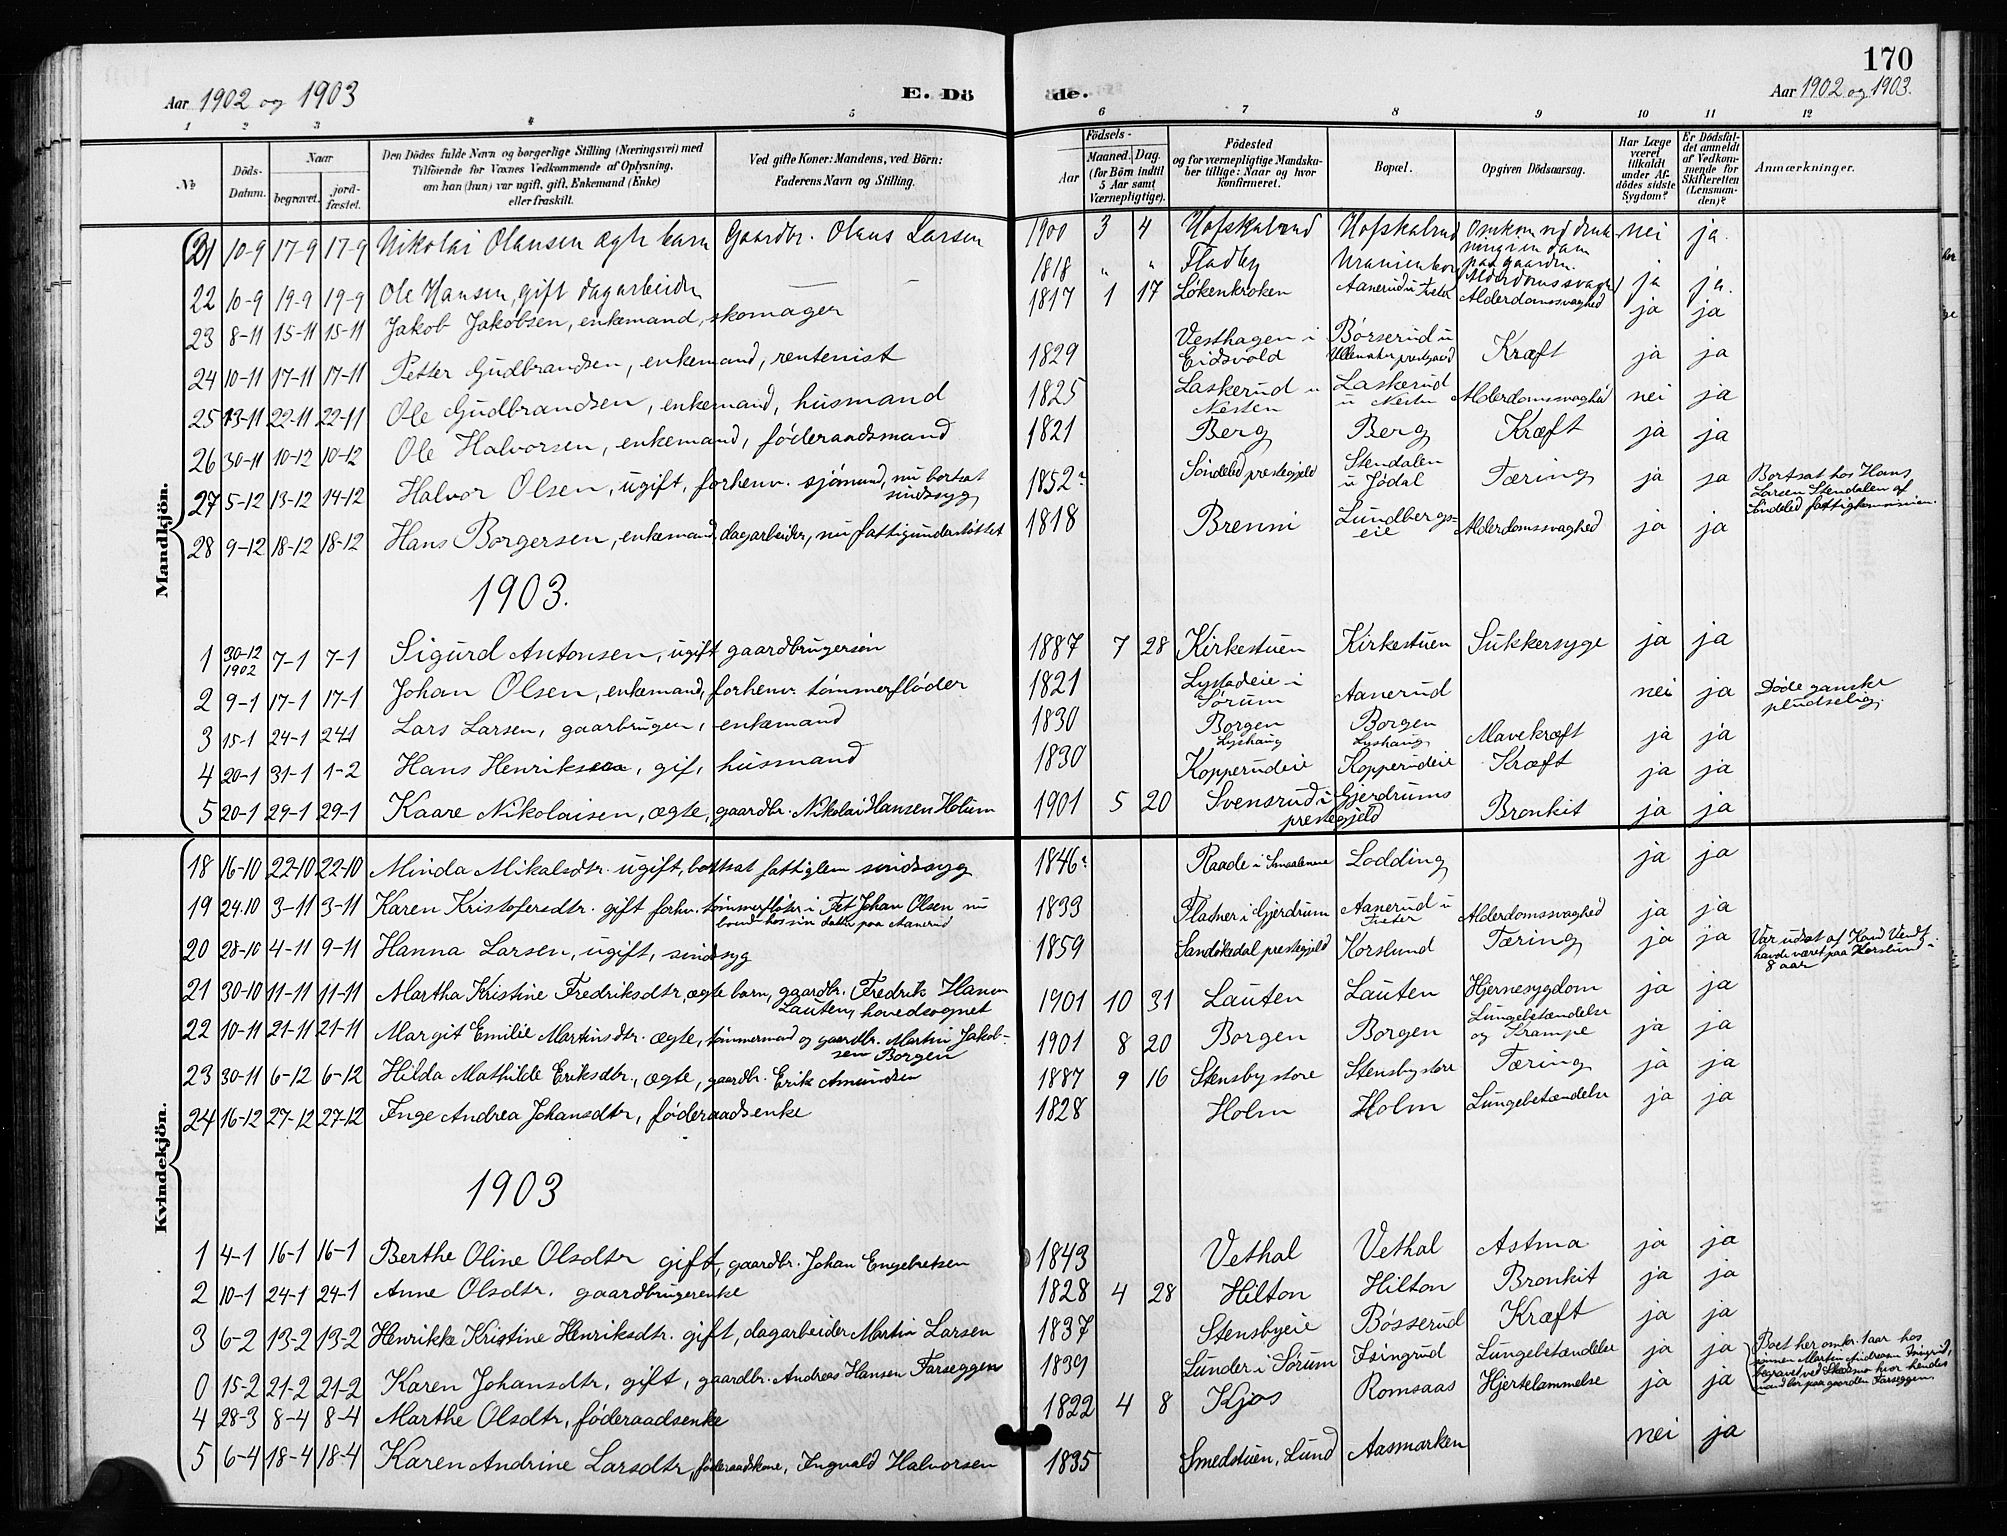 170
Aar 1902 og 1903
E. Dö
de.
Aar 1902 og 1903.
1 2 3 4 5 6 7 8 9 10 11 12
No
Döds-Datum.
Naar
begravet.
jord-fæstet.
Den Dödes fulde Navn og borgerlige Stilling (Næringsvei) med
Tilföiende for Voxnes Vedkommende af Oplysning,
om han (hun) var ugift, gift, Enkemand (Enke)
eller fraskilt.
Ved gifte Koner: Mandens, ved Börn:
Faderens Navn og Stilling.
Födsels-
Aar
Maaned. Dag.
(for Börn indtil
5 Aar samt
Værnepligtige).
Födested
og for værnepligtige Mandska-
ber tillige: Naar og hvor
konfirmeret.
Bopæl.
Opgiven Dödsaarsag.
Har Læge
været
tilkaldt
under Af-
dödes sidste
Sygdom?
Er Dödsfal-
det anmeldt
af Vedkom-
mende for
Skifteretten
(Lensman-
den)?
Anmærkninger.
Mandkjön.
21 10-9 17-9 17-9 Nikolai Olausen ægte barn Gaardbr. Olaus Larsen 1900 3 4 Hofskalrud Hofskalrud Omkom ved druk-
ning i en dam
paa gaarden. nei ja.
22 10-9 19-9 19-9 Ole Hansen, gift dagarbeider — 1818 " " Fladby Uranienborg Alderdomssvaghed ja ja.
23 8-11 15-11 15-11 Jakob Jakobsen, enkemand, skomager 1817 1 17 Løkenkroken Aanerud u Freter Alderdomssvaghed ja ja
24 10-11 17-11 17-11 Petter Gudbrandsen, enkemand, rentenist 1829 Vesthagen i
Eidsvold Børserud u
Ullensaker prestgaard Kræft ja ja
25 13-11 22-11 22-11 Ole Gudbrandsen, enkemand, husmand 1825 Laskerud u
Nesten Laskerud
u Nesten Alderdomssvaghed nei ja
26 30-11 10-12 10-12 Ole Halvorsen, enkemand, føderaadsmand 1821 Berg Berg Kræft ja ja
27 5-12 13-12 14-12 Halvor Olsen, ugift, forhenv. sjømand, nu bortsat
sindssyg 1852? Søndeled prestegjeld Stendalen
u Jødal Tæring ja ja Bortsat hos Hans
Larsen Stendalen af
Søndeled fattigkommision.
28 9-12 18-12 18-12 Hans Borgersen, enkemand, dagarbeider, nu fattigunderstøttet 1818 Brenni Lundbergs-
eie Alderdomssvaghed ja ja
1903.
1 30-12
1902 7-1 7-1 Sigurd Antonsen, ugift gaardbrugersøn 1887 7 28 Kirkestuen Kirkestuen Sukkersyge ja ja
2 9-1 17-1 17-1 Johan Olsen, enkemand, forhenv. tømmerfløder 1821 Lystadeie i
Sørum Aanerud nei ja Døde ganske
pludselig.
3 15-1 24-1 24-1 Lars Larsen, gaarbruger, enkemand 1830 Borgen
Lyshaug Borgen
Lyshaug Mavekræft ja ja
4 20-1 31-1 1-2 Hans Henriksen, gif, husmand 1830 Kopperudeie Kopperudeie Kræft ja ja
5 20-1 29-1 29-1 Kaare Nikolaisen, ægte, gaardbr. Nikolai Hansen Holum 1901 5 20 Svensrud i Gjerdrums
prestegjeld Bronkit ja ja
Kvindekjön.
18 16-10 22-10 22-10 Minda Mikalsdtr. ugift, bortsat fattiglem sindssyg 1846? Raade i Smaalenene Lodding ja ja
19 24.10 3-11 3-11 Karen Kristofersdtr. gift forhv. tømmerfløter i Fet Johan Olsen nu
boende hos sin datter paa Aanerud 1833 Flatner i Gjerdrum Aanerud u
Freter Alderdomssvaghed ja ja
20 28-10 4-11 9-11 Hanna Larsen, ugift, sindssyg 1859 Sandøkedal prestegjeld Korslund Tæring ja ja Var udsat af Kand Vendt.
havde været paa Korslund i
8 aar
21 30-10 11-11 11-11 Martha Kristine Fredriksdtr, ægte barn, gaardbr. Fredrik Hansen
Lauten, hovedsognet 1901 10 31 Lauten Lauten Hjernesygdom ja ja
22 10-11 21-11 21-11 Margit Emilie Martinsdtr. ægte, tømmermand og gaardbr. Martin Jakob-
sen Borgen 1901 8 20 Borgen Borgen Lungebetændelse
og Krampe ja ja
23 30-11 6-12 6-12 Hilda Mathilde Eriksdtr., ægte, gaardbr. Erik Amundsen 1887 9 16 Stensby store Stensby store Tæring ja ja
24 16-12 27-12 27-12 Inge Andrea Johansdtr, føderaadsenke 1828 Holm Holm Lungebetændelse ja ja
1903
1 4-1 16-1 16-1 Berthe Oline Olsdtr gift, gaardbr. Johan Engebretsen 1843 Vethal Vethal Astma ja ja
2 10-1 24-1 24-1 Anne Olsdtr. gaardbrugerenke 1828 4 28 Hilton Hilton Bronkit ja ja
3 6-2 13-2 13-2 Henrikke Kristine Henriksdtr. gift, dagarbeider Martin Larsen 1837 Stensbyeie Bøsserud Kræft ja ja
0 15-2 21-2 21-2 Karen Johansdtr, gift, gaardbr. Andreas Hansen Farseggen 1839 Lunder i Sørum Isingrud Lungebetændelse ja ja Boet her omkr. 1 aar hos
sønnen Martin Andreasen Isingrud,
begravet ved Skedsmo hvor hendes
mand bor paa gaarden Farseggen.
4 28-3 8-4 8-4 Marthe Olsdtr, føderaadsenke 1822 4 8 Kjos Romsaas Hjertelammelse ja ja
5 6-4 18-4 18-4 Karen Andrine Larsdtr, føderaadskone, Ingvald Halvorsen 1835 Smedstuen, Lund Aasmarken nei ja